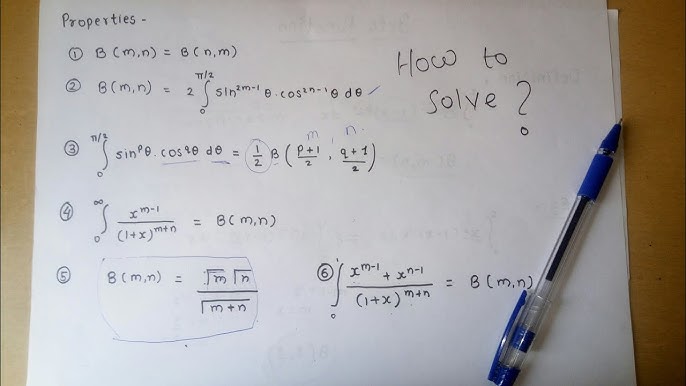 Properties -
① B(m,n) = B(n,m)
② B(m,n) = 2 ∫₀^{π/2} sin^{2m-1}θ. cos^{2n-1}θ dθ ✓
How to
solve ?
m n.
③ ∫₀^{π/2} sin^pθ. cos^qθ dθ = 1/2 B (p+1/2 , q+1/2)
④ ∫₀^∞ x^{m-1}/(1+x)^{m+n} = B(m,n)
⑤ B(m,n) = Γm Γn/Γm+n
⑥ ∫₀^1 x^{m-1} + x^{n-1}/(1+x)^{m+n} = B(m,n)